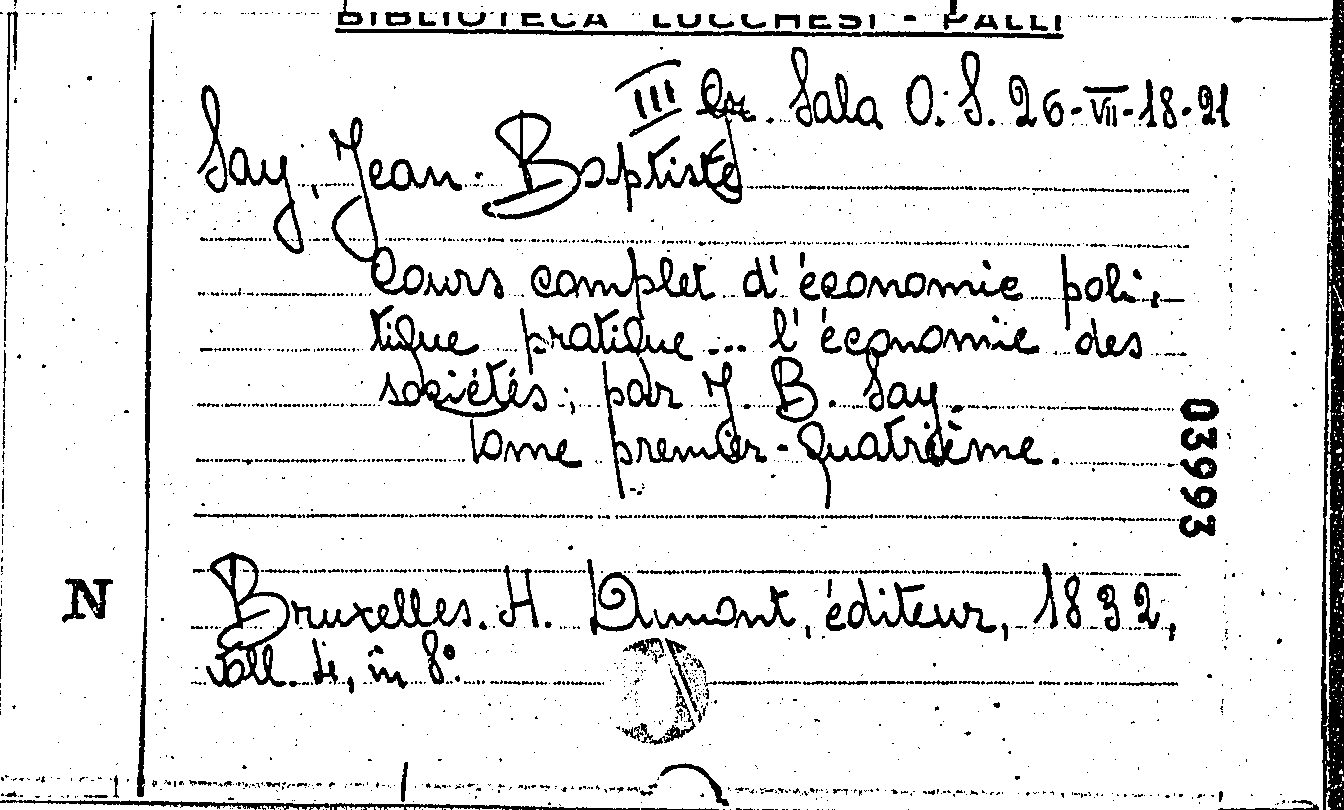 BIBLIOTECA LUCCHESI - PALLI
III Qr. Sala O. S. 26-VII-18-21
Say, Jean-Baptiste
Cours complet d'économie poli-
tique pratique... l'économie des
sociétés; par J. B. Say.
Tome premier-quatrième.
03993
N
Bruxelles. H. Dumont, éditeur, 1832,
voll. 4, in 8°.